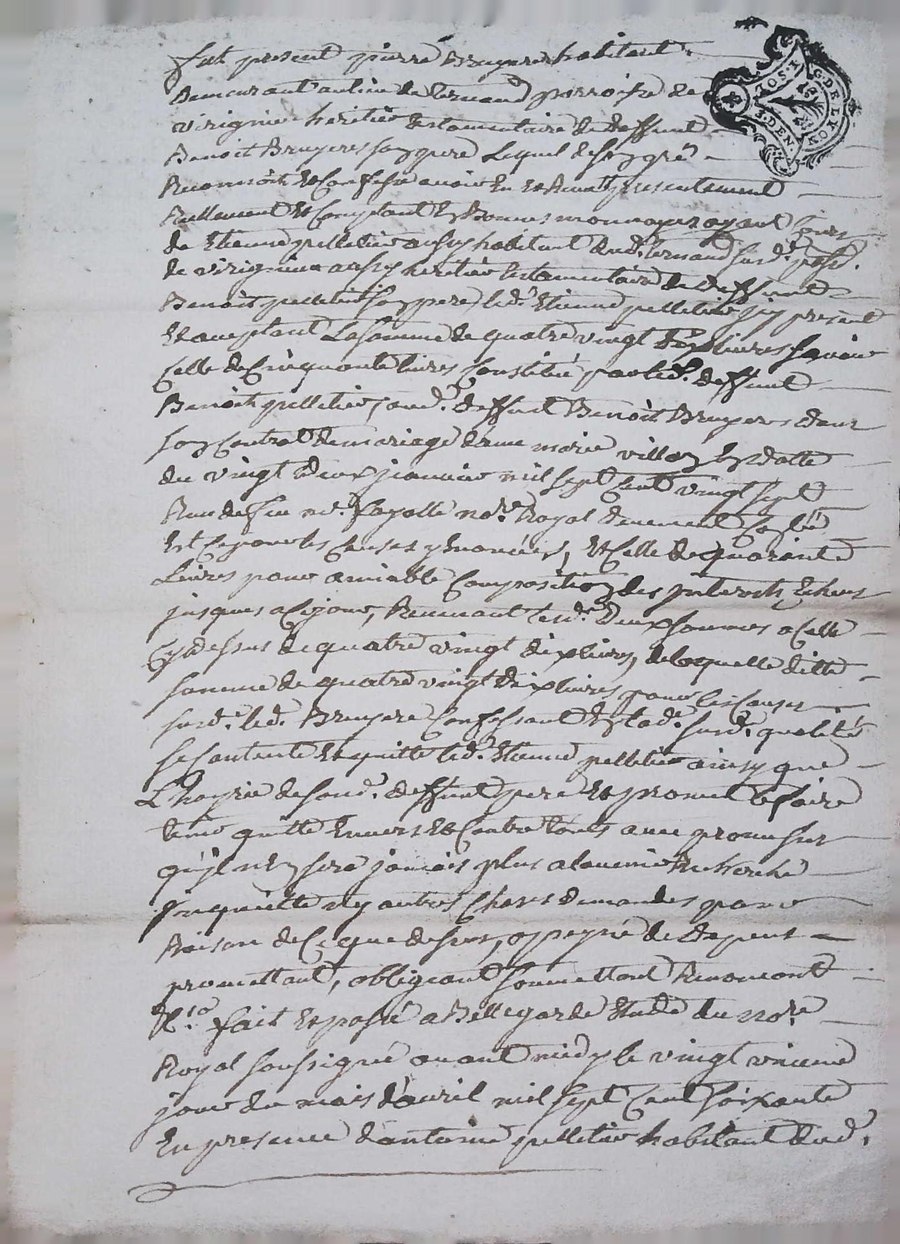 G. DE LYON
Fut present pierre Bruyere habitant
Demeurant au lieu de Cernaud parroisse de
virignieu heritier testamentaire de deffunt
Benoit Bruyere son pere Lequel de son gré
Reconnoit Et Confesse avoir Eu Et Receu presentement
Reellement Et Comptant En Bonnes monnoyes ayant Cours
de Etienne pelletier aussy habitant dud. Cernaud surd. passe.
de virignieu aussy heritier testamentaire de deffunt
Benoit pelletier son pere led. Etienne pelletier icy present
Et acceptant La somme de quatre vingt dix livres sçavoir
Celle de Cinquante livres Constitué par led. deffunt
Benoit pelletier aud. deffunt Benoit Bruyere dans
son Contrat de mariage avec marie villon En datte
du vingt deux janvier mil sept Cent vingt sept
Receu de feu me. fayolle nore. Royal duement Controllé
Est Ce pour les Causes y Enoncées, Et Celle de quarante
Livres pour amiable Composition des interets Echeus
jusques a Ce jour, Revenant lesd. Deux sommes a Celle
Cy dessus de quatre vingt dix livres, de laquelle ditte
somme de quatre vingt dix livres pour les Causes
surd. led. Bruyere Confessant Esd. surd. qualités
se Contente Et quitte led. Etienne pelletier ainsy que
L'hoyrie de soud. deffunt pere Et promet le faire
tenir quitte Envers Et Contre touts avec promesse
qu'il n'En sera jamais plus a l'avenir Recherché
Inquietté ny autres Choses demandes pour
Raison de Ce que dessus, a peyne de depens
promettant, obligeant soumettant Renoncant
&c. fait Et passé a Bellegarde Etude du nore.
Royal soussigné avant midy le vingt unieme
jour du mois d'avril mil sept Cent soixante
En presence d'antoine pelletier habitant dud.